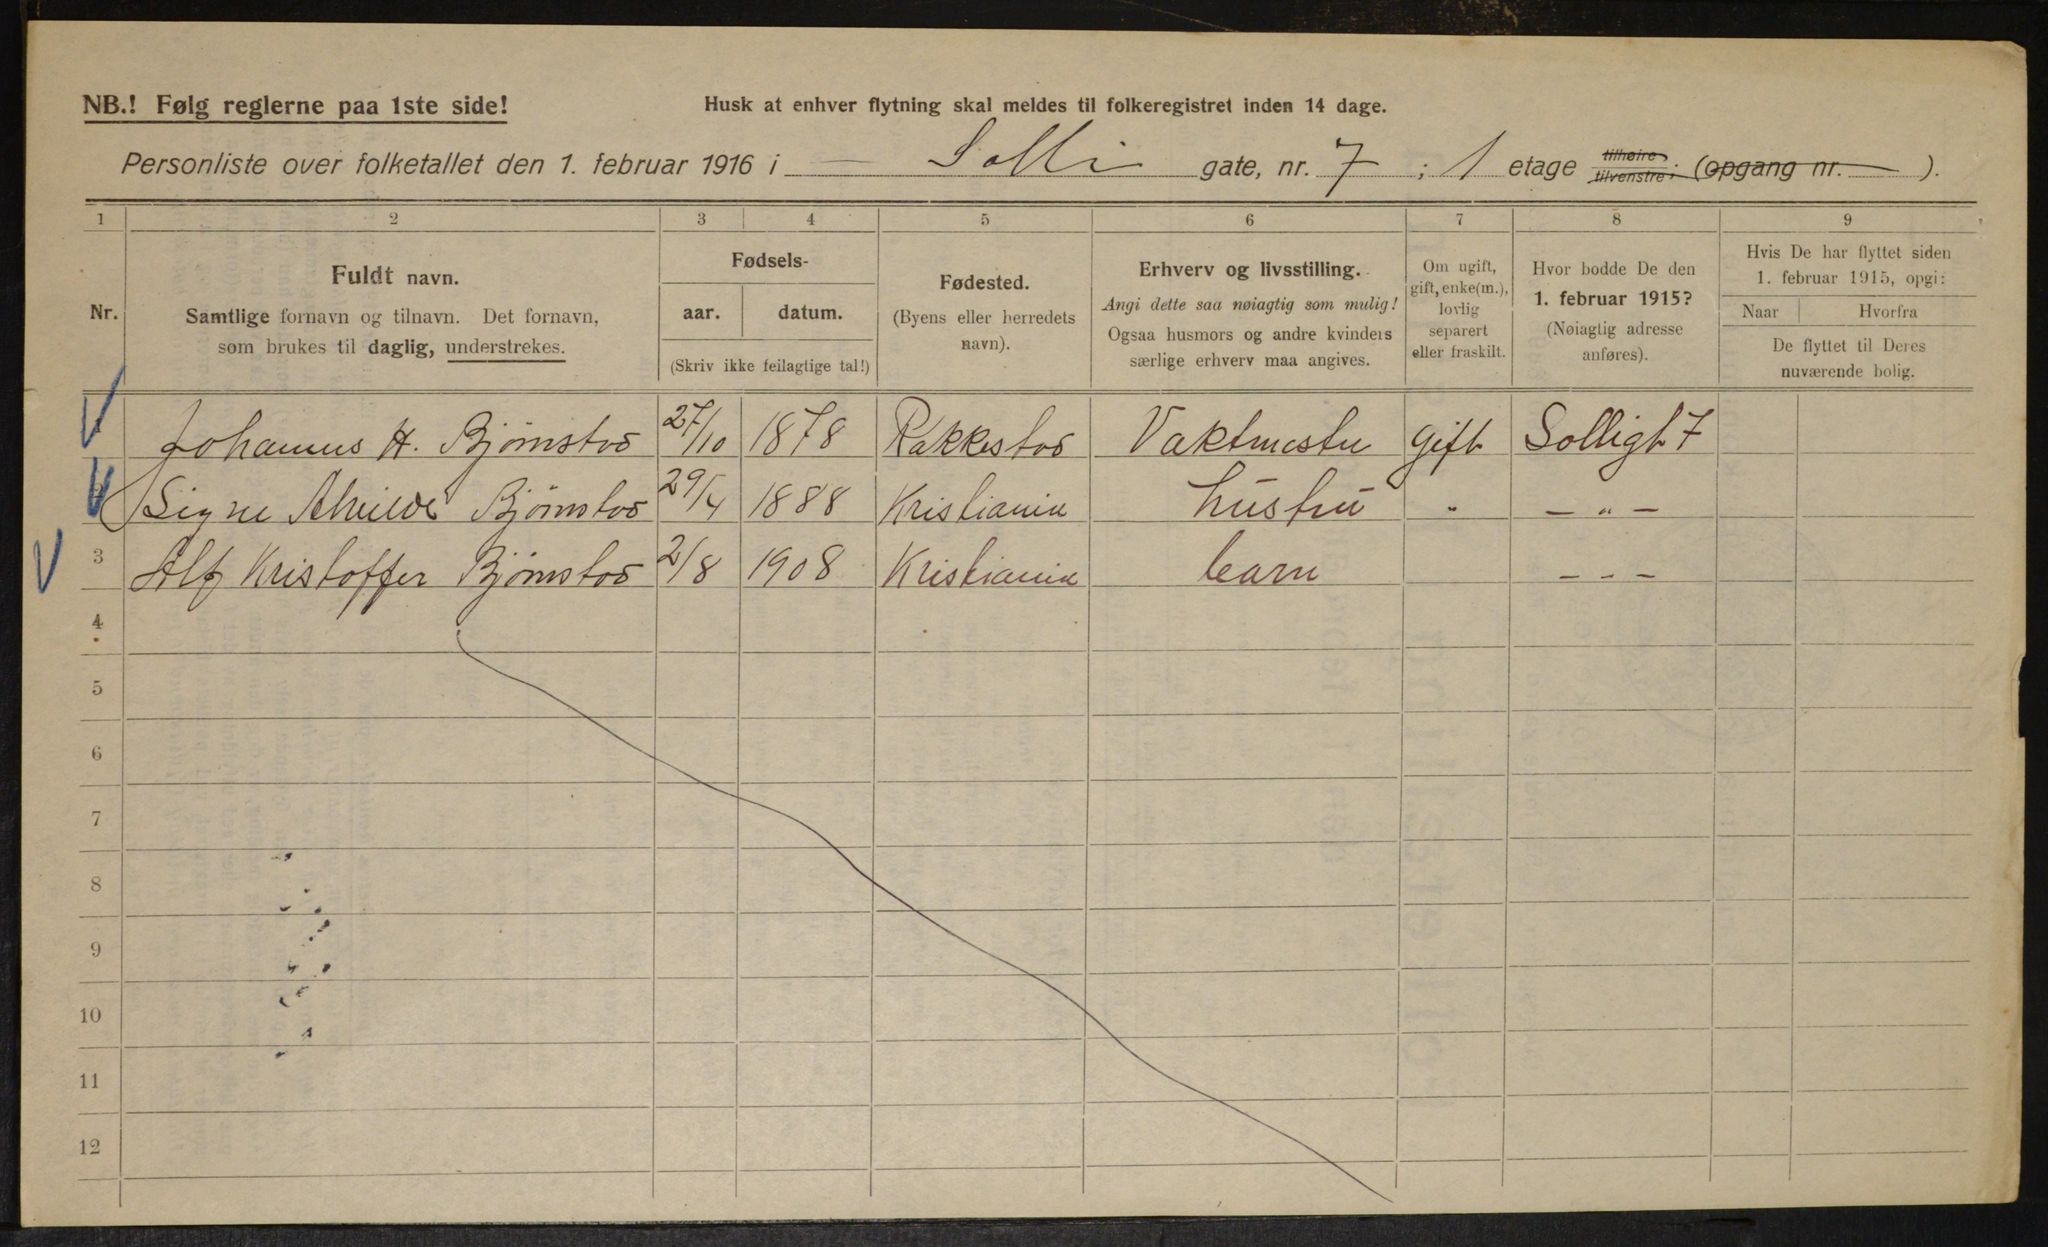 NB.! Følg reglerne paa 1ste side!
Husk at enhver flytning skal meldes til folkeregistret inden 14 dage.
Personliste over folketallet den 1. februar 1916 i Solli gate, nr. 7 ; 1 etage tilhøire tilvenstre; (opgang nr. — ).
1 2 3 4 5 6 7 8 9
Nr.
Fuldt navn.
Samtlige fornavn og tilnavn. Det fornavn,
som brukes til daglig, understrekes.
Fødsels-
aar. datum.
(Skriv ikke feilagtige tal!)
Fødested.
(Byens eller herredets
navn).
Erhverv og livsstilling.
Angi dette saa nøiagtig som mulig!
Ogsaa husmors og andre kvinders
særlige erhverv maa angives.
Om ugift,
gift, enke(m.),
lovlig
separert
eller fraskilt.
Hvor bodde De den
1. februar 1915?
(Nøiagtig adresse
anføres).
Hvis De har flyttet siden
1. februar 1915, opgi:
Naar Hvorfra
De flyttet til Deres
nuværende bolig.
Johannes H. Bjørnstad 27/10 1878 Rakkestad Vaktmester gift Solligt 7
Signe Bjørnstad 29/4 1888 Kristiania hustru " — " —
3 Alf Kristoffer Bjørnstad 2/8 1908 Kristiania barn — - —
4
5
6
7
8
9
10
11
12